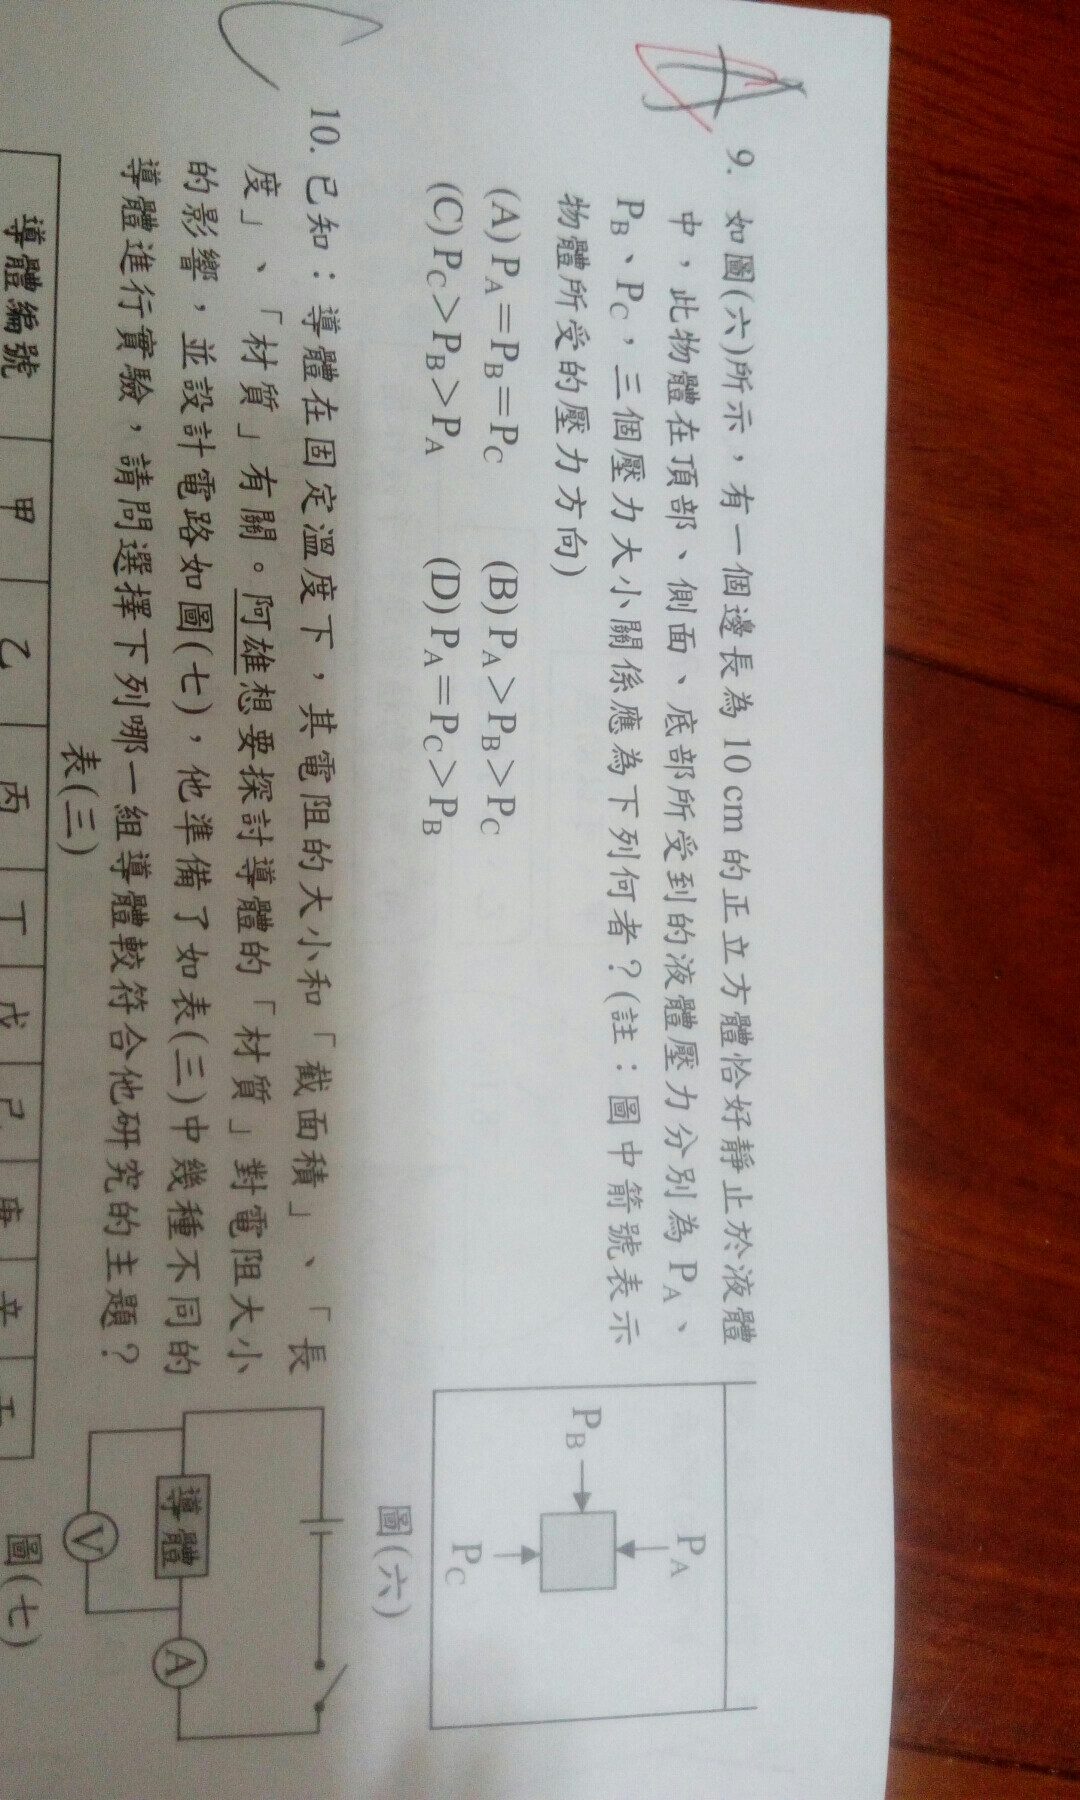 9. 如圖(六)所示，有一個邊長為 10 cm 的正立方體恰好靜止於液體
中，此物體在頂部、側面、底部所受到的液體壓力分別為 PA、
PB、PC，三個壓力大小關係應為下列何者？(註：圖中箭號表示
物體所受的壓力方向)
(A) PA＝PB＝PC (B) PA＞PB＞PC
(C) PC＞PB＞PA (D) PA＝PC＞PB
PA
PB
PC
圖(六)
10. 已知：導體在固定溫度下，其電阻的大小和「截面積」、「長
度」、「材質」有關。阿雄想要探討導體的「材質」對電阻大小
的影響，並設計電路如圖(七)，他準備了如表(三)中幾種不同的
導體進行實驗，請問選擇下列哪一組導體較符合他研究的主題？
導體
A
V
圖(七)
表(三)
導體編號 甲 乙 丙 丁 戊 己 庚 辛 壬